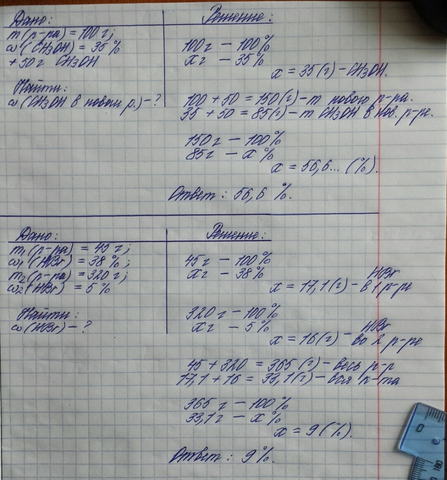 Дано:
m(р-ра) = 100 г;
ω(CH3OH) = 35 %
+50 г CH3OH
Найти:
ω(CH3OH в новом р.) - ?
Решение:
100 г — 100%
x г — 35%
x = 35 (г) - CH3OH.
100 + 50 = 150 (г) - m нового р-ра.
35 + 50 = 85 (г) - m CH3OH в нов. р-ре.
150 г — 100%
85 г — x %
x = 56,6... (%).
Ответ: 56,6 %.
Дано:
m1 (р-ра) = 45 г;
ω1 (HBr) = 38 %;
m2 (р-ра) = 320 г;
ω2 (HBr) = 5 %
Найти:
ω(HBr) - ?
Решение:
45 г — 100%
x г — 38%
x = 17,1 (г) - HBr в 1 р-ре
320 г — 100%
x г — 5%
x = 16 (г) - HBr во 2 р-ре
45 + 320 = 365 (г) - весь р-р
17,1 + 16 = 33,1 (г) - вся к-та
365 г — 100%
33,1 г — x %
x = 9 (%).
Ответ: 9 %.
0